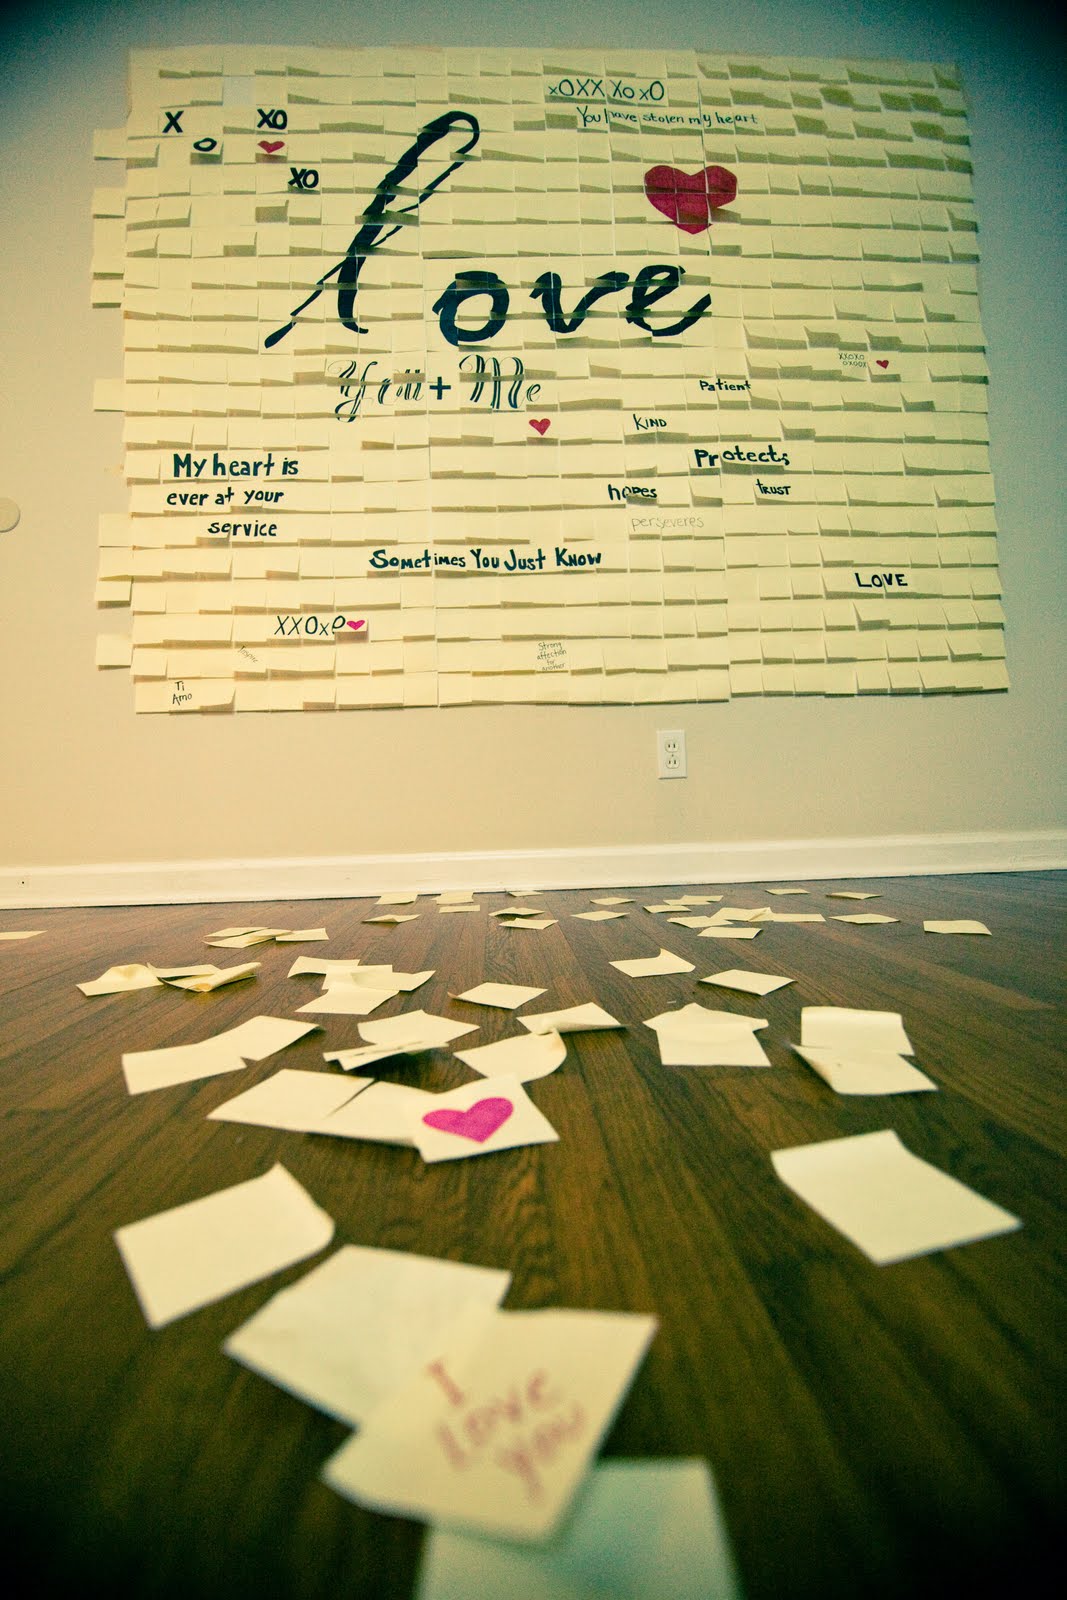 xOXX XoxO
You have stolen my heart
X
XO
O
XO
love
You + Me
XXOXO
OXOOX
Patient
KIND
Protects
My heart is
ever at your
service
hopes
trust
perseveres
Sometimes You Just Know
LOVE
XXOxO
Strong
affection
for
another
Ti
Amo
I
Love
You